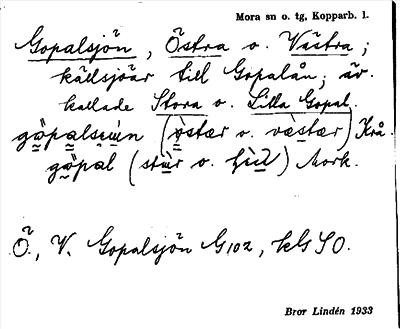 Mora sn o. tg, Kopparb. l.
Gopalsjön, Östra o. Västra;
källsjöar till Gopalån; äv.
kallade Stora o. Lilla Gopal.
(östær o. væstær) Krå.
gòpal (stùr o. ) Mork.
Ö., V. Gopalsjön G102, kls SO.
Bror Lindén 1933